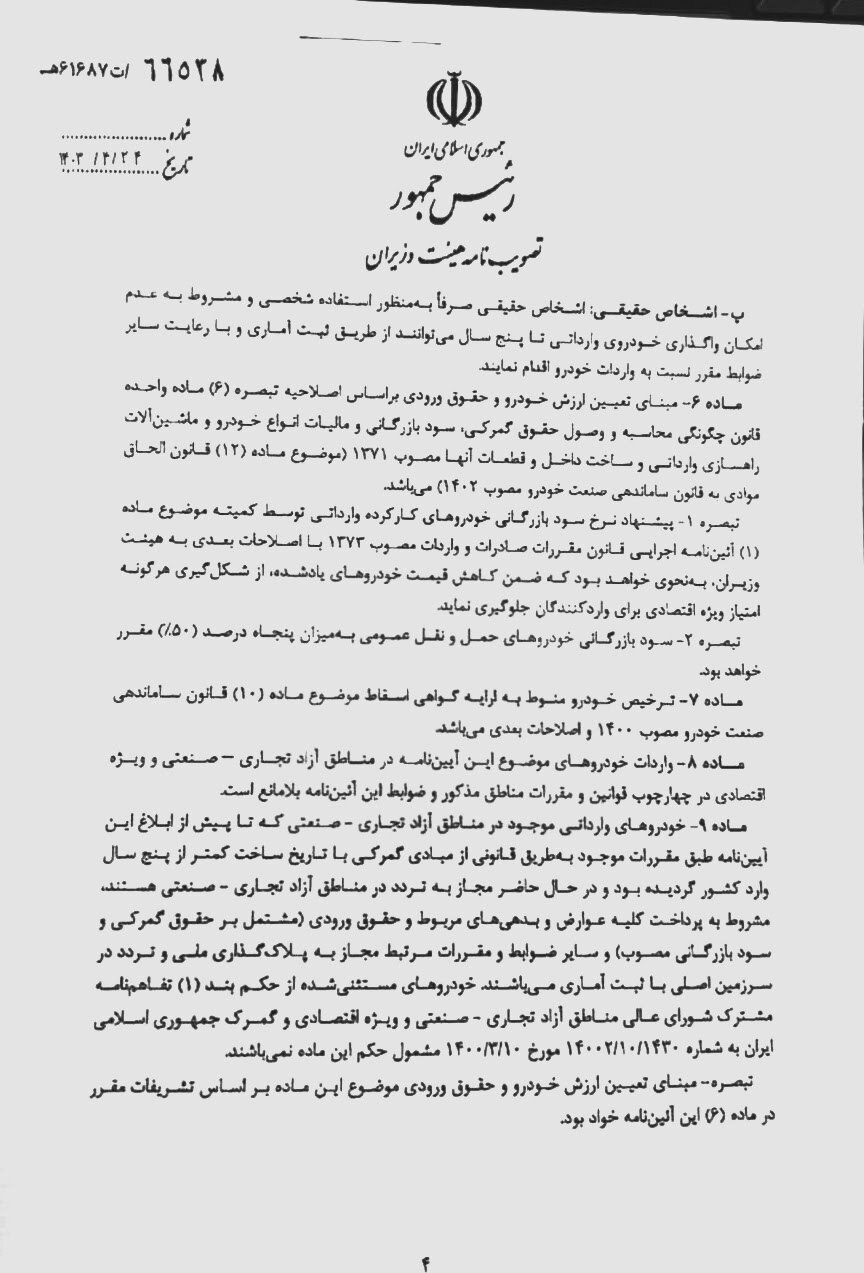 ۶۶۵۳۸ /ت۶۱۶۸۷هـ
شماره
تاریخ ۱۴۰۳/۴/۲۴
جمهوری اسلامی ایران
رئیس جمهور
تصویب نامه هیئت وزیران
پ- اشخاص حقیقی: اشخاص حقیقی صرفاً به‌منظور استفاده شخصی و مشروط به عدم
امکان واگذاری خودروی وارداتی تا پنج سال می‌توانند از طریق ثبت آماری و با رعایت سایر
ضوابط مقرر نسبت به واردات خودرو اقدام نمایند.
ماده ۶- مبنای تعیین ارزش خودرو و حقوق ورودی براساس اصلاحیه تبصره (۶) ماده واحده
قانون چگونگی محاسبه و وصول حقوق گمرکی، سود بازرگانی و مالیات انواع خودرو و ماشین‌آلات
راهسازی وارداتی و ساخت داخل و قطعات آنها مصوب ۱۳۷۱ (موضوع ماده (۱۲) قانون الحاق
موادی به قانون ساماندهی صنعت خودرو مصوب ۱۴۰۲) می‌باشد.
تبصره ۱- پیشنهاد نرخ سود بازرگانی خودروهای کارکرده وارداتی توسط کمیته موضوع ماده
(۱) آئین‌نامه اجرایی قانون مقررات صادرات و واردات مصوب ۱۳۷۳ با اصلاحات بعدی به هیئت
وزیران، به‌نحوی خواهد بود که ضمن کاهش قیمت خودروهای یادشده، از شکل‌گیری هرگونه
امتیاز ویژه اقتصادی برای واردکنندگان جلوگیری نماید.
تبصره ۲- سود بازرگانی خودروهای حمل و نقل عمومی به‌میزان پنجاه درصد (۵۰٪) مقرر
خواهد بود.
ماده ۷- ترخیص خودرو منوط به ارایه گواهی اسقاط موضوع ماده (۱۰) قانون ساماندهی
صنعت خودرو مصوب ۱۴۰۰ و اصلاحات بعدی می‌باشد.
ماده ۸- واردات خودروهای موضوع این آیین‌نامه در مناطق آزاد تجاری – صنعتی و ویژه
اقتصادی در چهارچوب قوانین و مقررات مناطق مذکور و ضوابط این آئین‌نامه بلامانع است.
ماده ۹- خودروهای وارداتی موجود در مناطق آزاد تجاری - صنعتی که تا پیش از ابلاغ این
آیین‌نامه طبق مقررات موجود به‌طریق قانونی از مبادی گمرکی با تاریخ ساخت کمتر از پنج سال
وارد کشور گردیده بود و در حال حاضر مجاز به تردد در مناطق آزاد تجاری - صنعتی هستند،
مشروط به پرداخت کلیه عوارض و بدهی‌های مربوط و حقوق ورودی (مشتمل بر حقوق گمرکی و
سود بازرگانی مصوب) و سایر ضوابط و مقررات مرتبط مجاز به پلاک‌گذاری ملی و تردد در
سرزمین اصلی با ثبت آماری می‌باشند. خودروهای مستثنی‌شده از حکم بند (۱) تفاهم‌نامه
مشترک شورای عالی مناطق آزاد تجاری - صنعتی و ویژه اقتصادی و گمرک جمهوری اسلامی
ایران به شماره ۱۴۰۰۲/۱۰/۱۴۳۰ مورخ ۱۴۰۰/۳/۱۰ مشمول حکم این ماده نمی‌باشند.
تبصره- مبنای تعیین ارزش خودرو و حقوق ورودی موضوع این ماده بر اساس تشریفات مقرر
در ماده (۶) این آئین‌نامه خواد بود.
۴